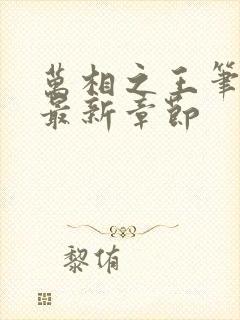 萬相之王筆
最新章節
黎侑